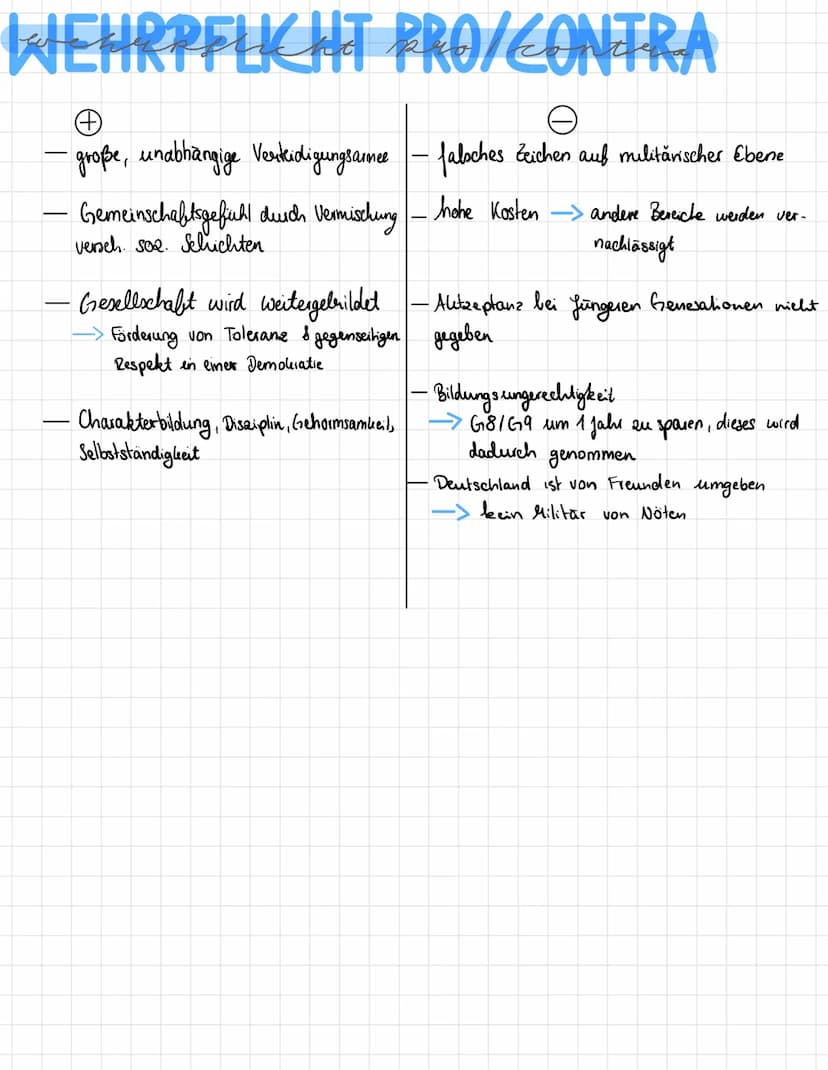 WEHRPFLICHT PRO/CONTRA
wehrpflicht pro/contra
+
– große, unabhängige Verteidigungsarmee
– Gemeinschaftsgefühl durch Vermischung
versch. soz. Schichten
– Gesellschaft wird weitergebildet
→ Förderung von Toleranz & gegenseitigen
Respekt in einer Demokratie
– Charakterbildung, Disziplin, Gehormsamkeit,
Selbstständigkeit
–
– falsches Zeichen auf militärischer Ebene
– hohe Kosten → andere Bereiche werden ver-
nachlässigt
– Aktzeptanz bei jüngeren Generationen nicht
gegeben
– Bildungsungerechtigkeit
→ G8/G9 um 1 Jahr zu sparen, dieses wird
dadurch genommen
– Deutschland ist von Freunden umgeben
→ kein Militär von Nöten